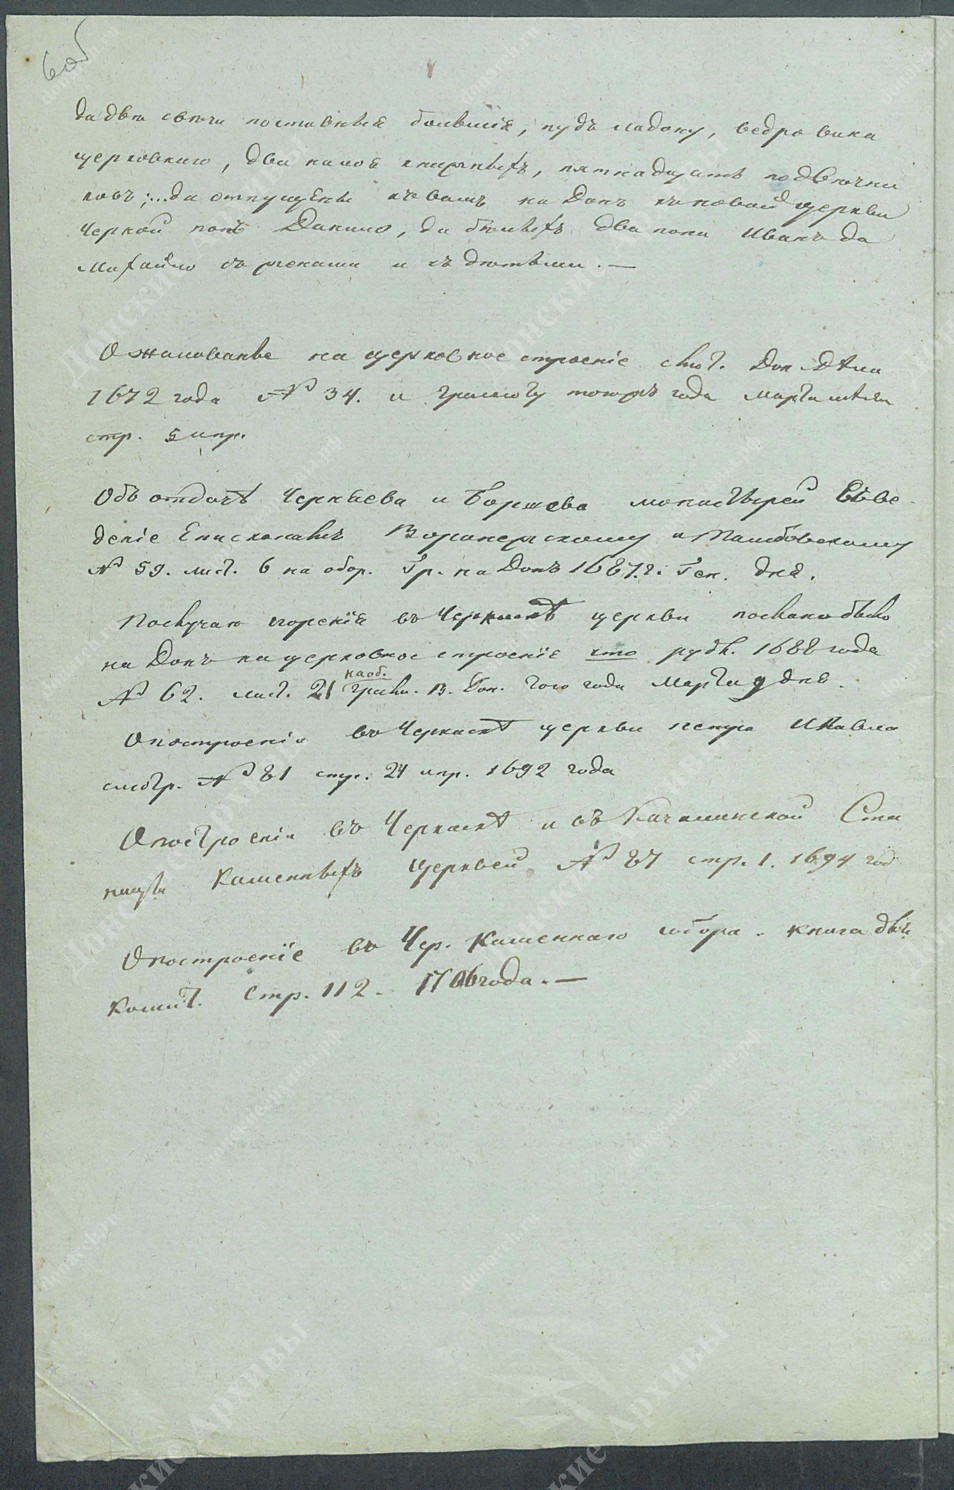 6 об
да две свечи поставныя большiя, пудъ ладону, ведро вина
церковнаго, два налоя книжныхъ, пятнадцать подсвечни
ковъ ;... да отпущены къ вамъ на Донъ къ новой церкви
черной попъ Данило, да белыхъ два попа Иванъ да
Михайло съ женами и съ детьми. —
О жалованье на церковное строенiе смот. Дон. Дела
1672 года № 34. и грамоту тогожъ года Марта
стр. 5 и пр.
Объ отдаче Черниева и Боршева монастырей въ ве
денiе Епископамъ Воронежскому и Тамбовскому
№ 59. лист. 6 на обор. Гр. на Донъ 1687 г. Ген. дня.
По случаю згоренiя въ Черкаске церкви послано было
на Донъ на церковное строенiе сто рубл. 1688 года
№ 62. лист. 21 на об. грам. в. Дон. того года Марта 9 дня.
О построенiи въ Черкаске церкви Петра и Павла
смотр. № 81 стр. 24 и пр. 1692 года
О построенiи въ Черкаске и въ Качалинской Ста
ницы Каменныхъ Церквей № 87 стр. 1. 1694 год
О построенiе въ Чер. Каменнаго собора. книга
Стр. 112. 1706 года. —